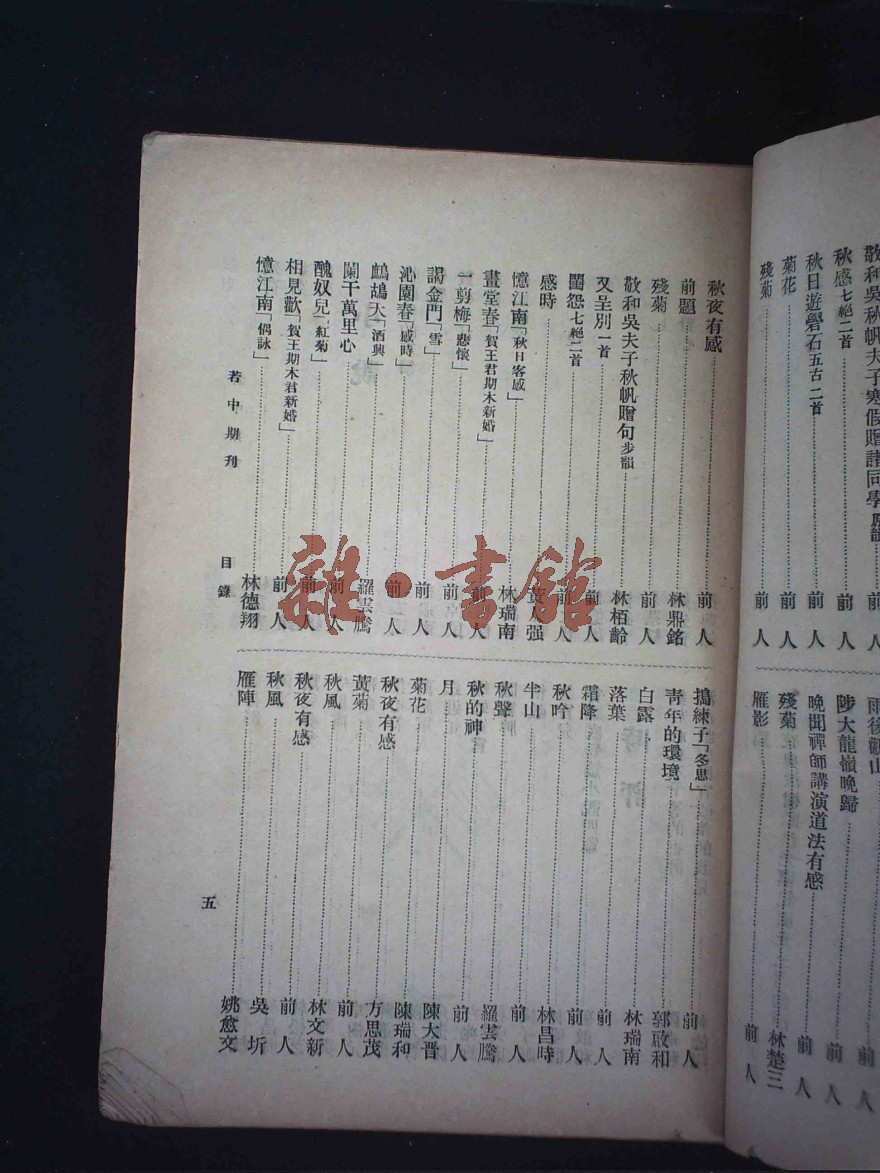 敬和吳秋帆夫子寒假贈諸同學原韻……前人
秋感七絕二首……前人
秋日遊礐石五古二首……前人
菊花……前人
殘菊……前人
雨後觀山……前人
陟大龍嶺晚歸……前人
晚聞禪師講演道法有感……前人
殘菊……林楚三
雁影……前人
秋夜有感……前人
前題……林鼎銘
殘菊……前人
敬和吳夫子秋帆贈句步韻……林栢齡
又呈別一首……前人
閨怨七絕二首……前人
感時……黃人强
憶江南「秋日客感」……林瑞南
畫堂春「賀王君期木新婚」……前人
一剪梅「悲懷」……前人
謁金門「雪」……前人
沁園春「感時」……前人
鷓鴣天「酒興」……羅雲騰
闌干萬里心……前人
醜奴兒「紅菊」……前人
相見歡「賀王期木君新婚」……前人
憶江南「偶詠」……林德翔
搗練子「冬思」……前人
青年的環境……郭啟和
白露……林瑞南
落葉……前人
霜降……前人
秋吟……林昌時
半山……前人
秋聲……羅雲騰
秋的神……前人
月……陳大晉
菊花……陳瑞和
秋夜有感……方思茂
黃菊……前人
秋風……林文新
秋夜有感……前人
秋風……吳圻
雁陣……姚愈文
若中期刊 目錄 五
雜·書館